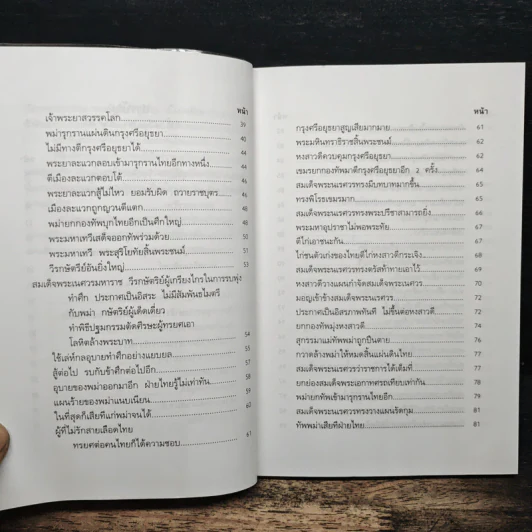 หน้า
เจ้าพระยาสวรรคโลก 39
พม่ารุกรานแผ่นดินกรุงศรีอยุธยา 39
ไม่มีทางตีกรุงศรีอยุธยาได้
พระยาละแวกลอบเข้ามารุกรานไทยอีกทางหนึ่ง
ตีเมืองละแวกตอบโต้
พระยาละแวกสู้ไม่ไหว ยอมรับผิด ถวายราชบุตร
เมืองละแวกถูกญวนตีแตก
พม่ายกกองทัพบุกไทยอีกเป็นศึกใหญ่ 48
พระมหาเทวีเสด็จออกทัพร่วมด้วย
พระมหาเทวี พระสุริโยทัยสิ้นพระชนม์
วีรกษัตริย์อันยิ่งใหญ่ 53
สมเด็จพระนเรศวรมหาราช วีรกษัตริย์ผู้เกรียงไกรในการรบพุ่ง
ทำศึก ประกาศเป็นอิสระ ไม่มีสัมพันธไมตรี
กับพม่า กษัตริย์ผู้เด็ดเดี่ยว
ทำพิธีปฐมกรรมตัดศีรษะผู้ทรยศเอา
โลหิตล้างพระบาท 54
ใช้เล่ห์กลอุบายทำศึกอย่างแยบยล
สู้ต่อไป รบกับข้าศึกต่อไปอีก
อุบายของพม่าออกมาอีก ฝ่ายไทยรู้ไม่เท่าทัน
แผนร้ายของพม่าแนบเนียน 59
ในที่สุดก็เสียทีแก่พม่าจนได้ 60
ผู้ที่ไม่รักสายเลือดไทย
ทรยศต่อคนไทยก็ได้ความชอบ 61
หน้า
กรุงศรีอยุธยาสูญเสียมากมาย 61
พระมหินทราธิราชสิ้นพระชนม์ 63
หงสาวดีควบคุมกรุงศรีอยุธยา
เขมรยกกองทัพมาตีกรุงศรีอยุธยาอีก 2 ครั้ง
สมเด็จพระนเรศวรทรงมีบทบาทมากขึ้น 64
ทรงพิโรธเขมรมาก 65
สมเด็จพระนเรศวรทรงพระปรีชาสามารถยิ่ง
พระมหาอุปราชาไม่พอพระทัย
ตีไก่เอาชนะกัน
ไก่ชนตัวเก่งของไทยตีไก่หงสาวดีกระเจิง
สมเด็จพระนเรศวรทรงตรัสท้าทายเอาไว้
หงสาวดีวางแผนกำจัดสมเด็จพระนเรศวร 70
มอญเข้าข้างสมเด็จพระนเรศวร 72
ประกาศเป็นอิสรภาพทันที ไม่ขึ้นต่อหงสาวดี
ยกกองทัพมุ่งหงสาวดี
สุกรรมาแม่ทัพพม่าถูกปืนตาย
กวาดล้างพม่าให้หมดสิ้นแผ่นดินไทย 77
สมเด็จพระนเรศวรว่าราชการได้เต็มที่ 77
ยกย่องสมเด็จพระเอกาทศรถเทียบเท่ากัน 78
พม่ายกทัพเข้ามารุกรานไทยอีก 79
สมเด็จพระนเรศวรทรงวางแผนรัดกุม 81
ทัพพม่าเสียทีฝ่ายไทย 81